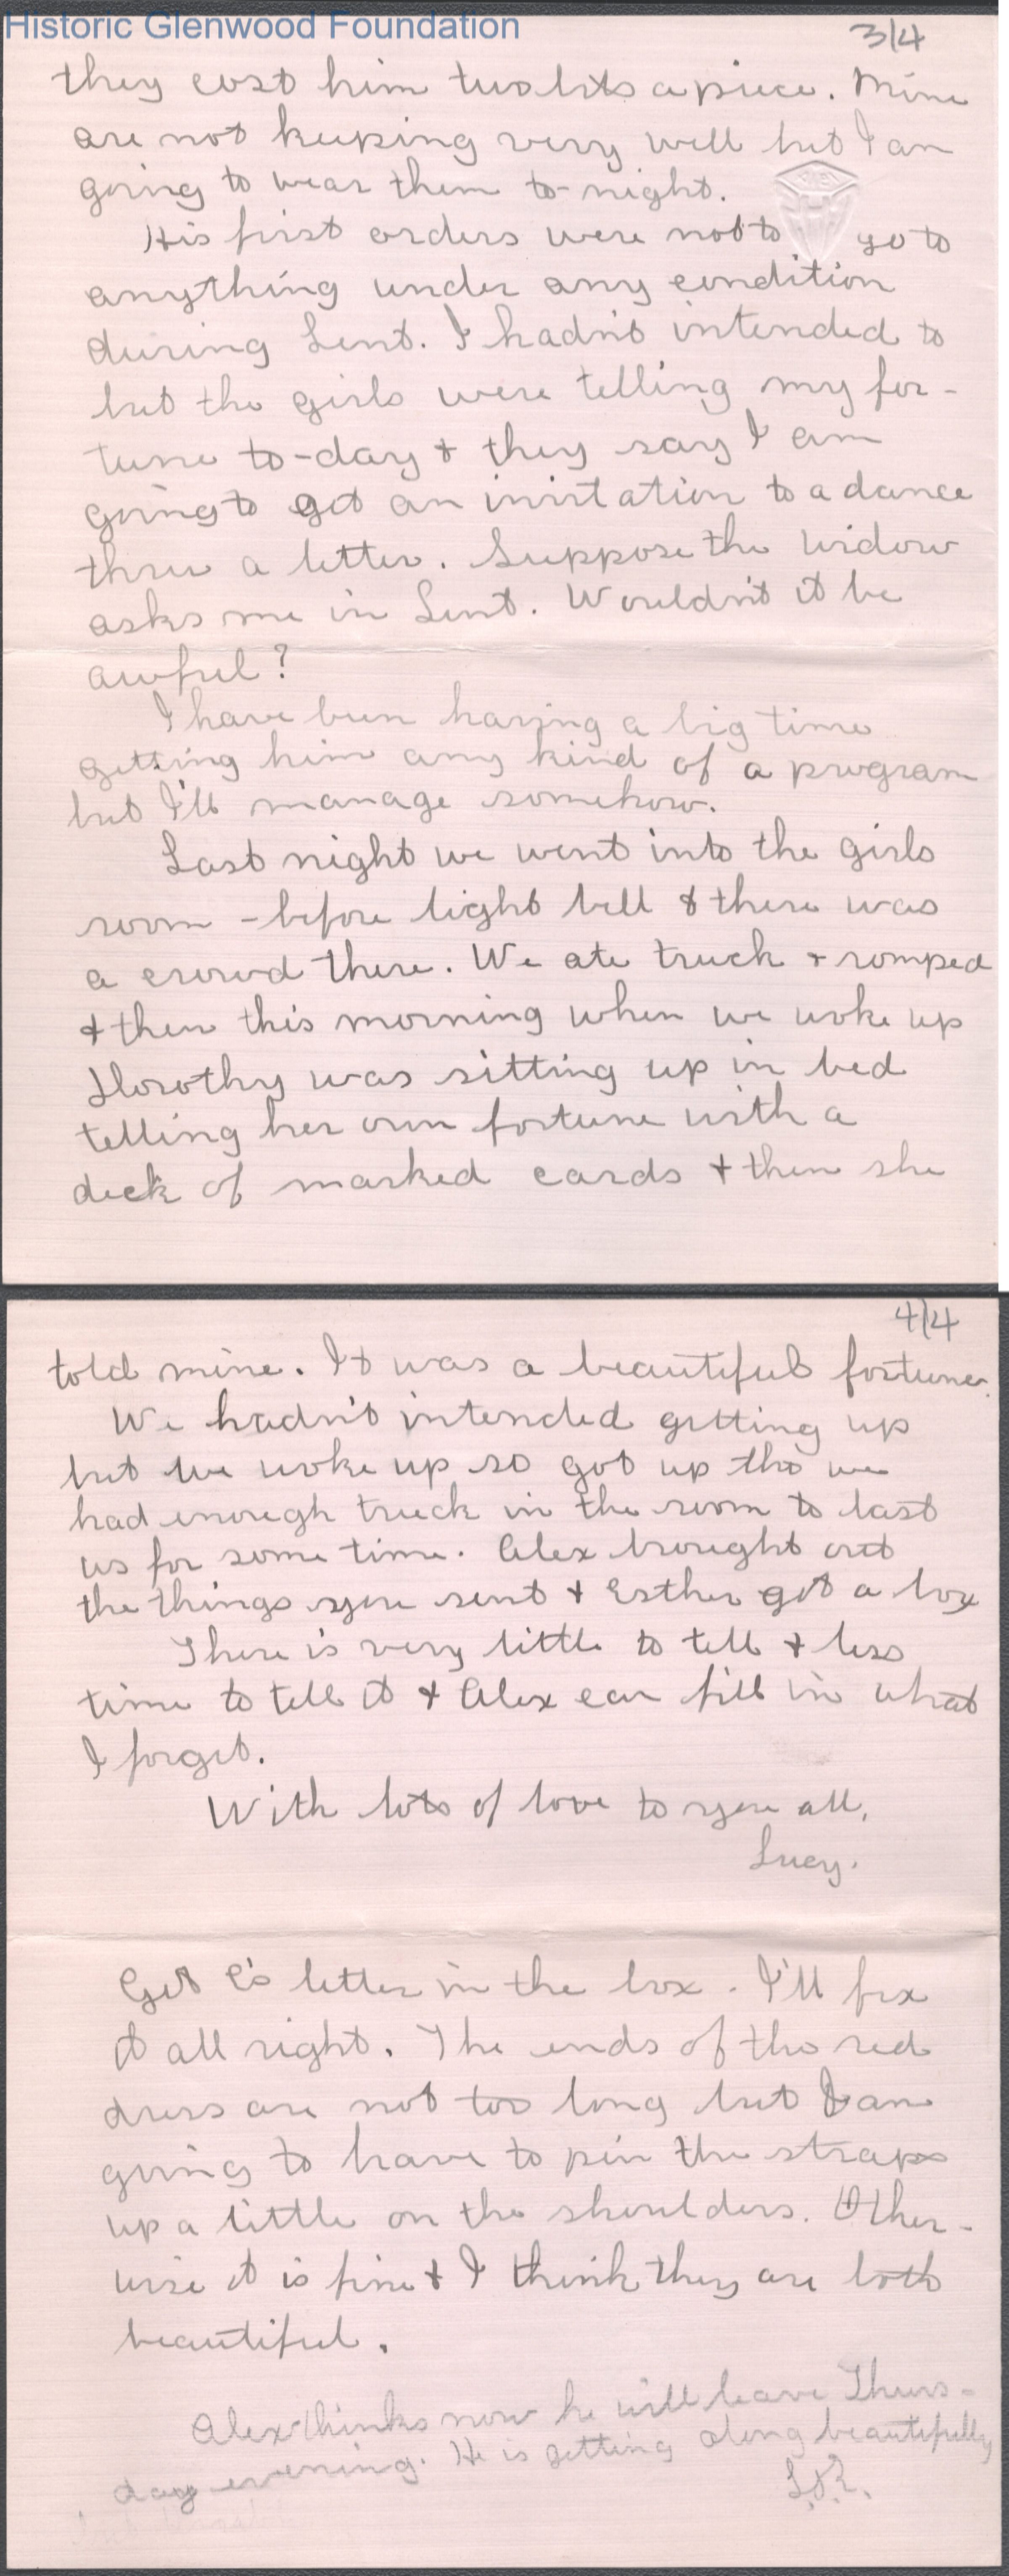 Historic Glenwood Foundation
3/4
they cost him two bits a piece. Mine
are not keeping very well but I am
going to wear them to-night.
His first orders were not to go to
anything under any condition
during Lent. I hadn't intended to
but the girls were telling my for-
tune to-day & they say I am
going to get an invitation to a dance
thru a letter. Suppose the widow
asks me in Lent. Wouldn't it be
awful?
I have been having a big time
getting him any kind of a program
but I'll manage somehow.
Last night we went into the girls
room - before light bell & there was
a crowd there. We ate truck & romped
& then this morning when we woke up
Dorothy was sitting up in bed
telling her own fortune with a
deck of marked cards & then she
4/4
told mine. It was a beautiful fortune.
We hadn't intended getting up
but we woke up so got up tho we
had enough truck in the room to last
us for some time. Alex brought out
the things you sent & Esther got a box
There is very little to tell & less
time to tell it & Alex can fill in what
I forget.
With lots of love to you all,
Lucy.
Got E's letter in the box. I'll fix
it all right. The ends of the red
dress are not too long but I am
going to have to pin the straps
up a little on the shoulders. Other-
wise it is fine & I think they are both
beautiful.
Alex thinks now he will leave Thurs-
day evening. He is getting along beautifully